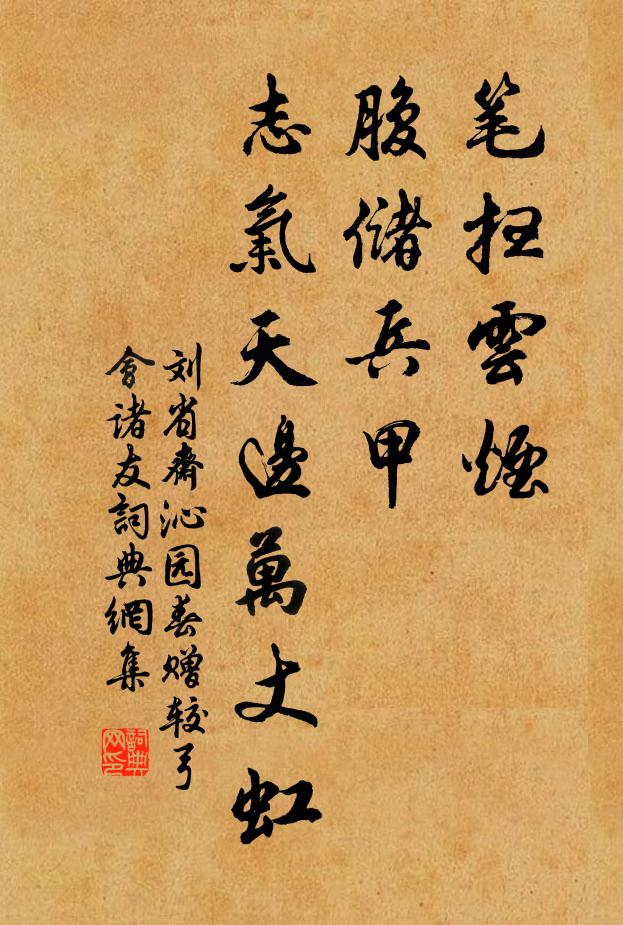 笔扫雲煙
腹儲兵甲
志氣天邊萬丈虹
刘省齋沁园春赠较弓
會诸友詞典網集
詞典
网印